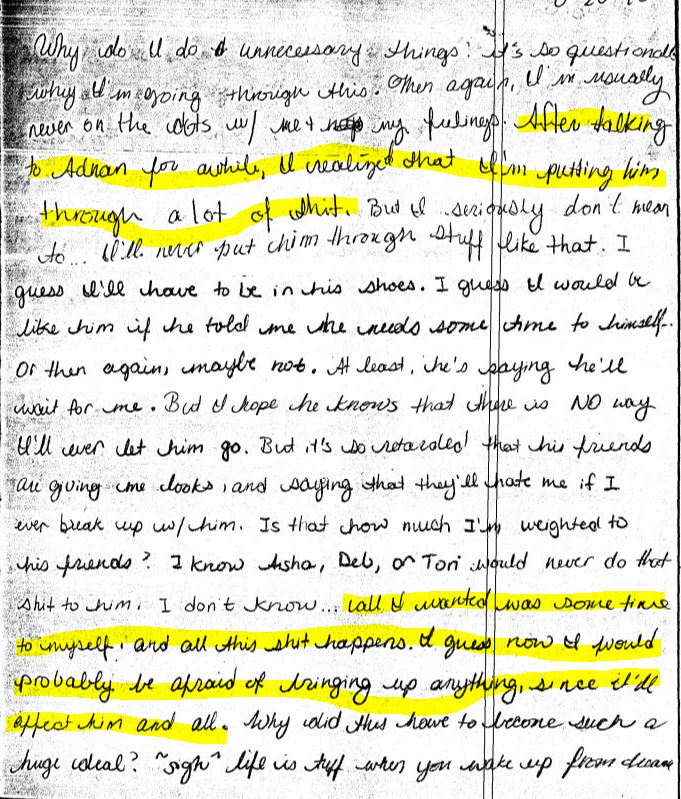 Why do I do unnecessary things? It's so questionable
why I'm going through this. Then again, I'm usually
never on the dots w/ me + my feelings. After talking
to Adnan for awhile, I realized that I'm putting him
through a lot of shit. But I seriously don't mean
to... I'll never put him through stuff like that. I
guess I'll have to be in his shoes. I guess I would be
like him if he told me he needs some time to himself..
Or then again, maybe not. At least, he's saying he'll
wait for me. But I hope he knows that there is NO way
I'll ever let him go. But it's so retarded that his friends
are giving me looks, and saying that they'll hate me if I
ever break up w/ him. Is that how much I'm weighted to
his friends? I know Aisha, Deb, or Tori would never do that
shit to him. I don't know... all I wanted was some time
to myself, and all this shit happens. I guess now I would
probably be afraid of bringing up anything, since it'll
affect him and all. Why did this have to become such a
huge ideal? ~sigh~ life is tuff when you wake up from dream